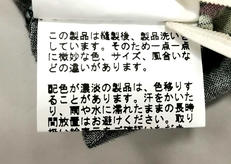 この製品は縫製後、製品洗いを
しています。そのため一点一点
に微妙な色、サイズ、風合いな
どの違いがあります。
配色が濃淡の製品は、色移りす
ることがあります。汗をかいた
り、雨や水に濡れたままの長時
間放置はお避けください。取り